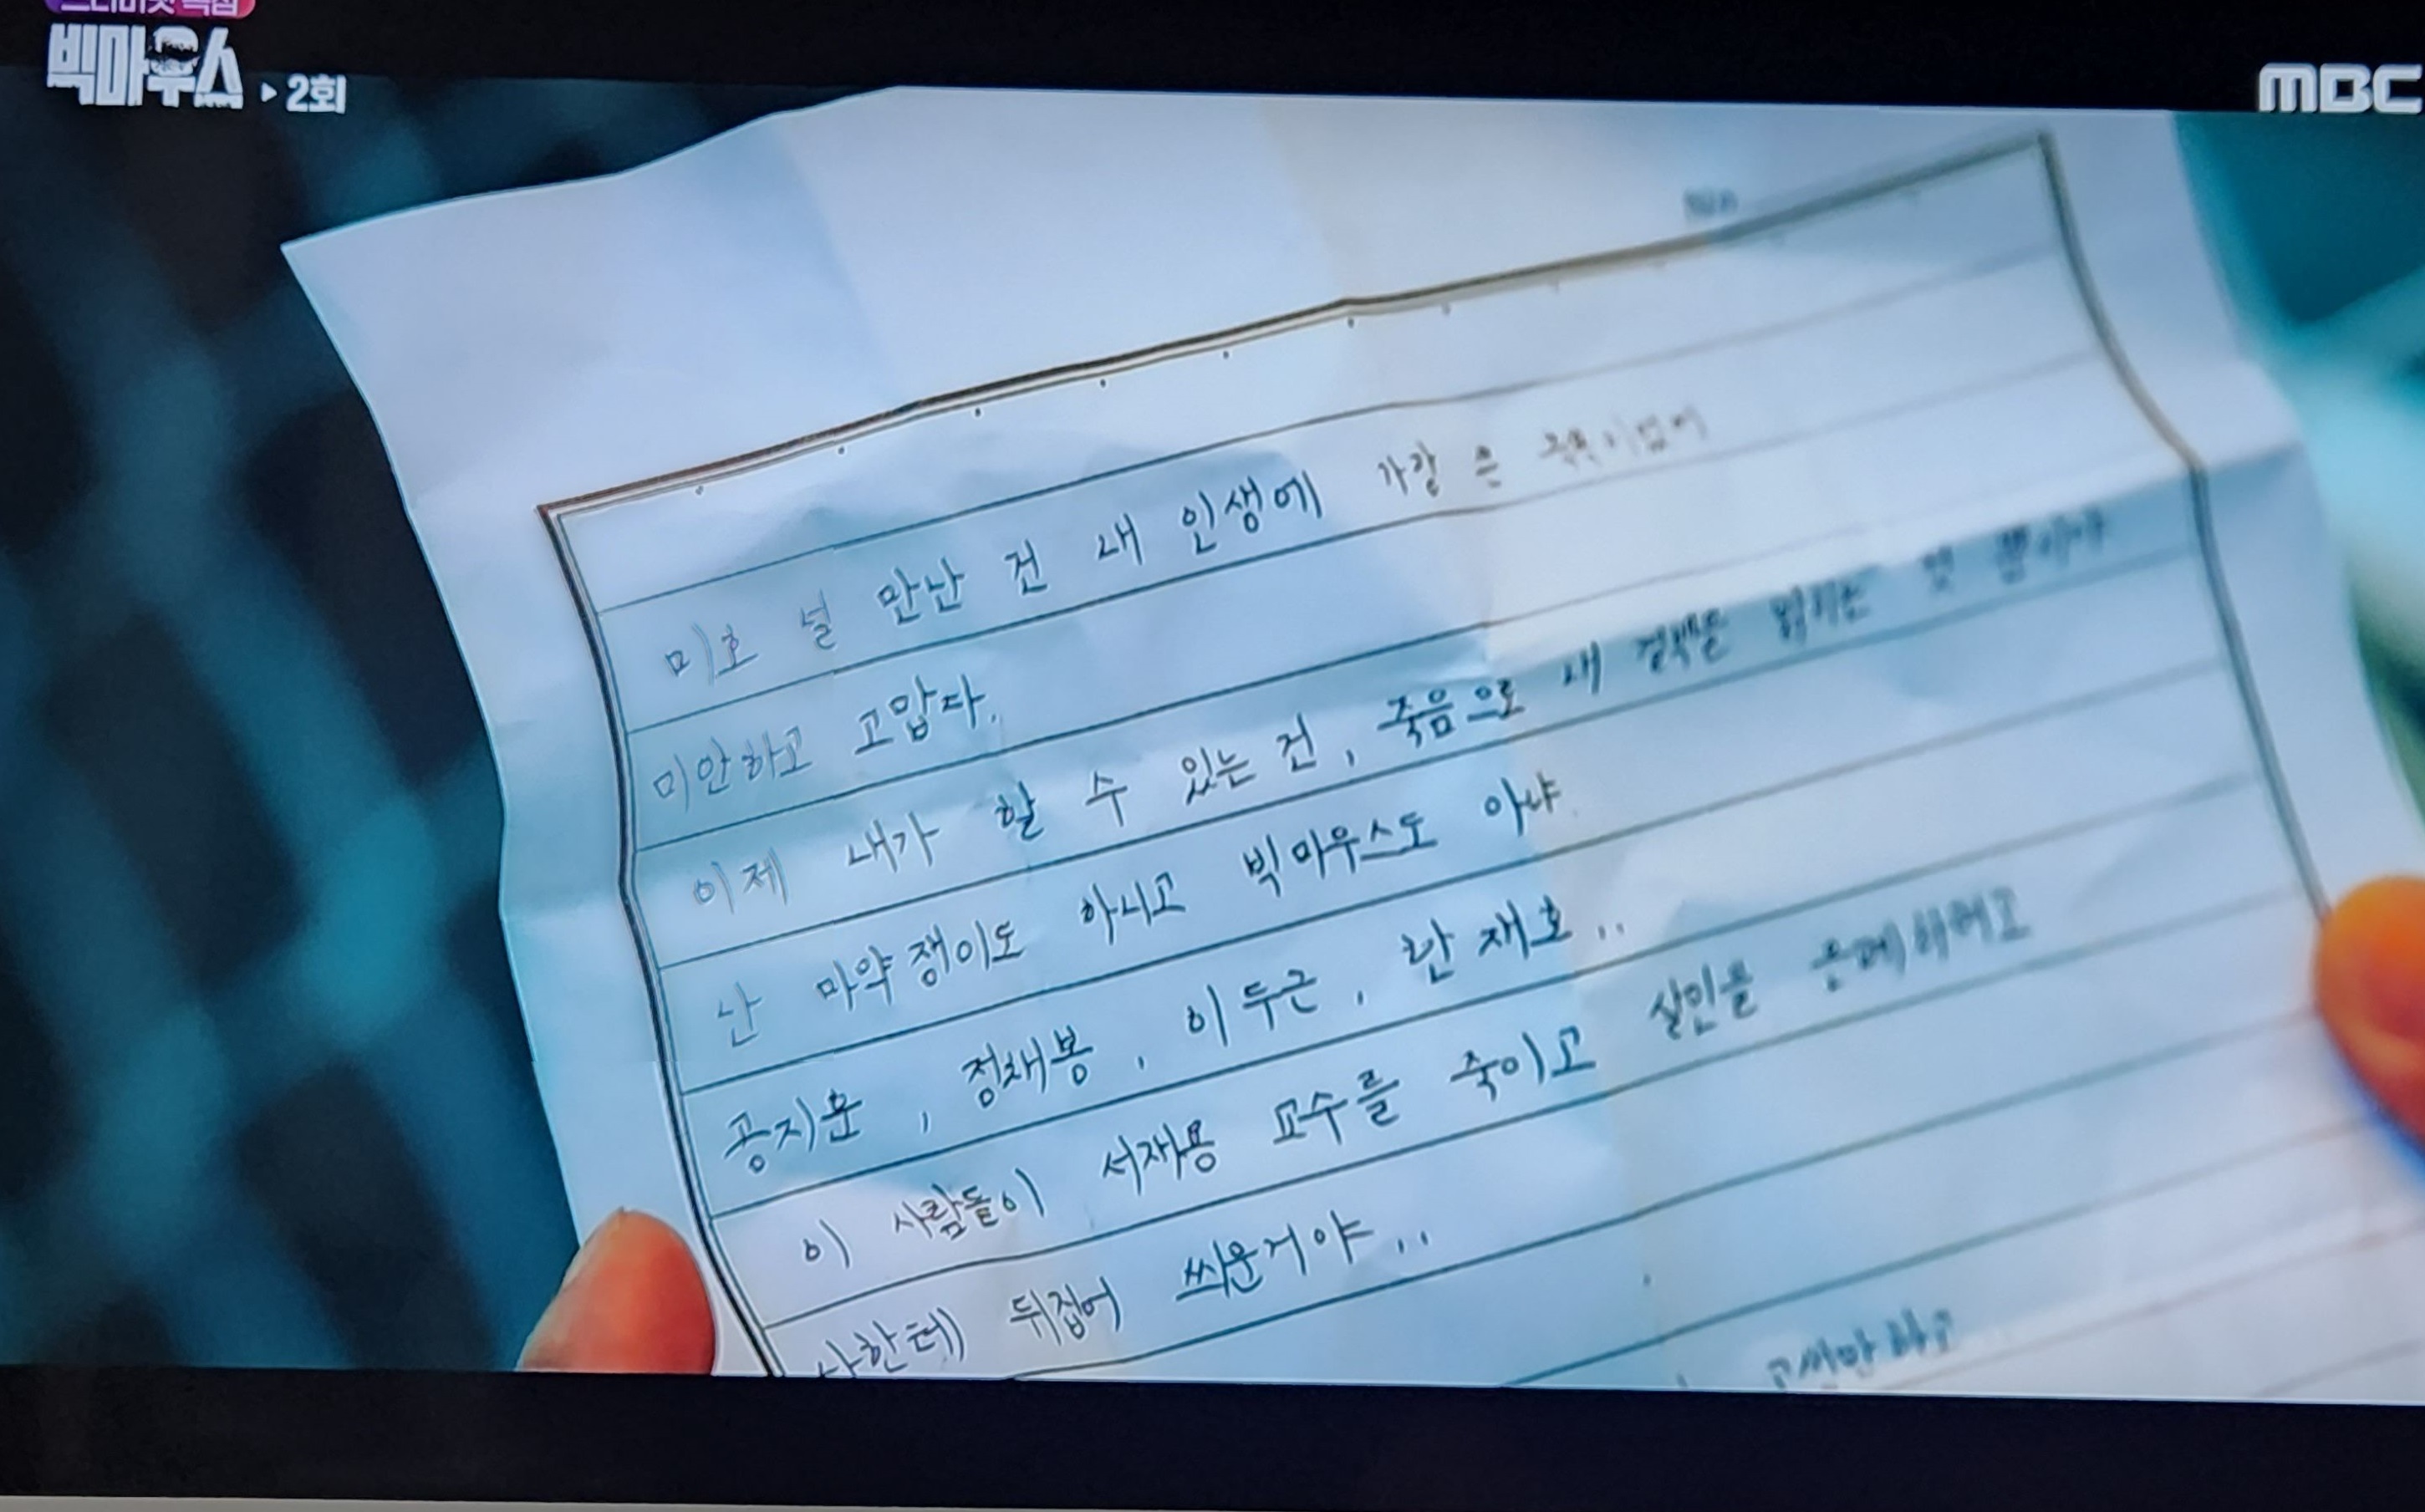 빅마우스 ▸ 2회
MBC
미호 널 만난 건 내 인생에 가장 큰
미안하고 고맙다.
이제 내가 할 수 있는 건, 죽음으로 내 결백을 밝히는 것 뿐이야
난 마약쟁이도 아니고 빅마우스도 아냐.
공지훈, 정채봉, 이두근, 한재호..
이 사람들이 서재용 교수를 죽이고 살인을 은폐하려고
나한테 뒤집어 씌운거야..